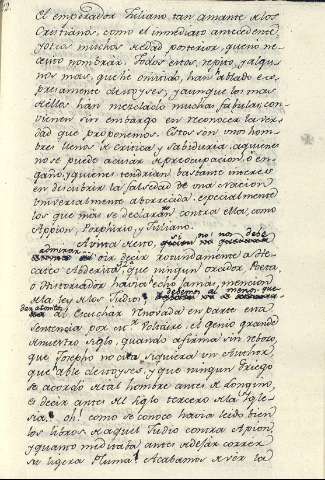 El emperador Juliano tan amante de los
Cristianos, como el inmediato antecedente,
y otros muchos de edad posterior, que no ne-
cesito nombrar. Todos estos, repito, y algu-
nos mas, que he omitido, han hablado ex-
presamente de Moyses, y aunque los mas
de ellos han mezclado muchas fabulas, con-
vienen sin embargo en reconocer la ver-
dad que proponemos. Estos son unos hom-
bres llenos de critica y sabiduria, a quienes
no se puede acusar de preocupacion, o en-
gaño, y quienes tendrian bastante interes
en descubrir la falsedad de una Nacion
universalmente aborrecida. especialmente
los que mas se declaran contra ella, como
Appion, Porphirio, y Juliano.
A vista de esto, no nos debe
admirar oir decir rotundamente a He-
cateo Abderita, que ningun orador, Poeta,
o Historiador havia hecho jamas mencion
de la ley de los Judios debemos al menos que-
dar atonitos al escuchar renovada en parte esta
sentencia por Mr. Voltaire, el genio grande
de nuestro siglo, quando afirma sin rebozo,
que Josepho no cita siquiera un Author,
que hable de Moyses, y que ningun Griego
se acordo de tal hombre antes de Longino,
es decir antes del siglo tercero de la Igle-
sia. oh! como se conoce havia leido bien
los libros de aquel Judio contra Apion,
y quanto meditaba antes de dexar correr
su ligera pluma! Acabamos de ver la